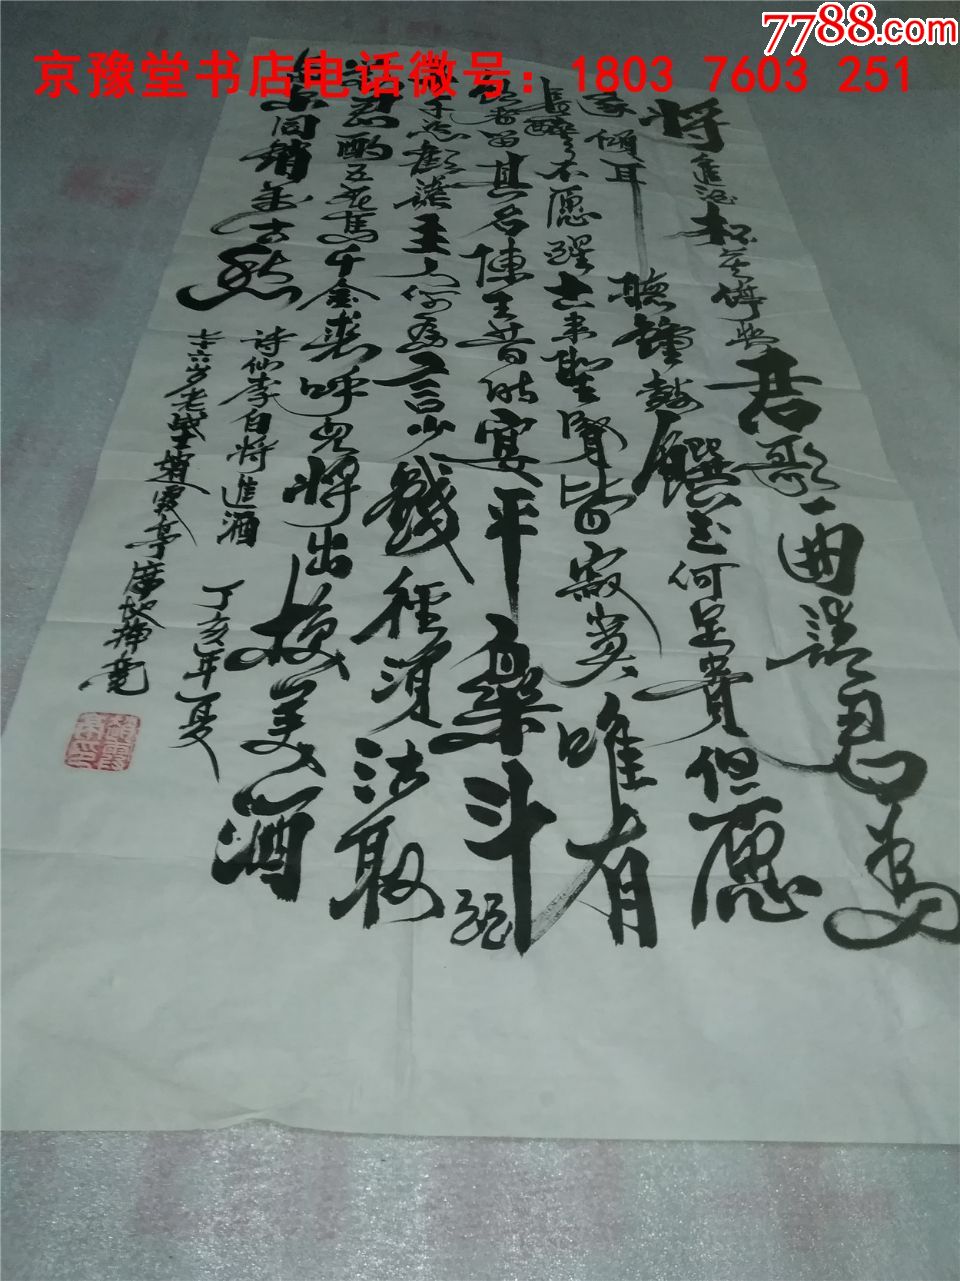 7788.com
京豫堂书店电话微号：1803 7603 251
将進酒杯莫停与君歌一曲請君為
我倾耳聽鐘鼓饌玉何足貴但愿
長醉不愿醒古来聖賢皆寂寞唯有
飲者留其名陳王昔时宴平樂斗酒
千恣歡謔主人何為言少錢径須沽取
对君酌五花馬千金裘呼兒将出换美酒
与尔同銷萬古愁
诗仙李白将進酒 丁亥年夏
七十六岁老战士趙霞亭